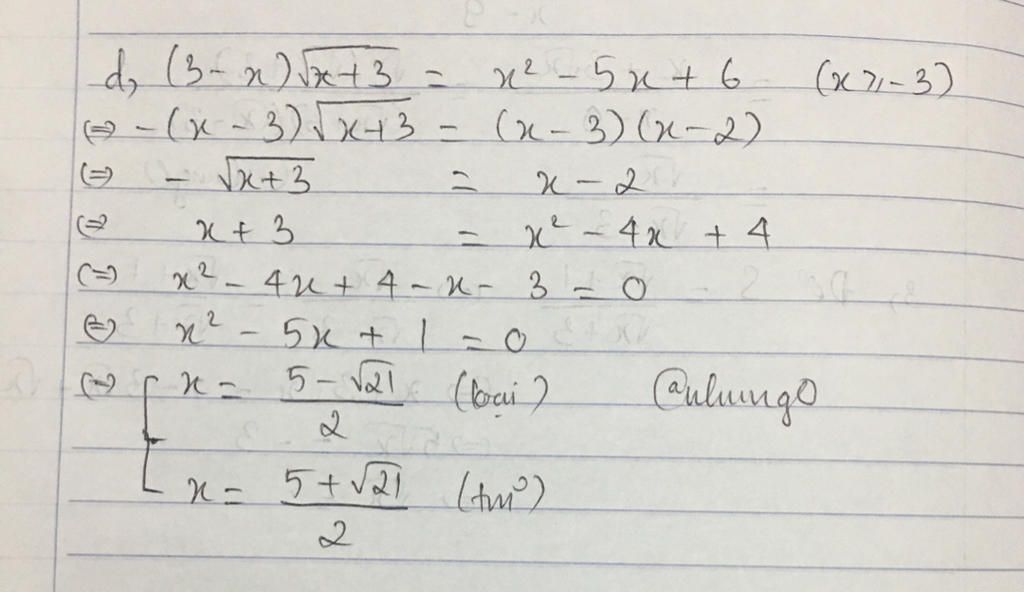 d, (3 - x)√(x+3) = x² - 5x + 6 (x ⩾ -3)
⇔ -(x - 3)√(x+3) = (x - 3)(x - 2)
⇔ - √(x+3) = x - 2
⇔ x + 3 = x² - 4x + 4
⇔ x² - 4x + 4 - x - 3 = 0
⇔ x² - 5x + 1 = 0
⇔ [ x = (5 - √21)/2 (loại) @nlung0
x = (5 + √21)/2 (tm)